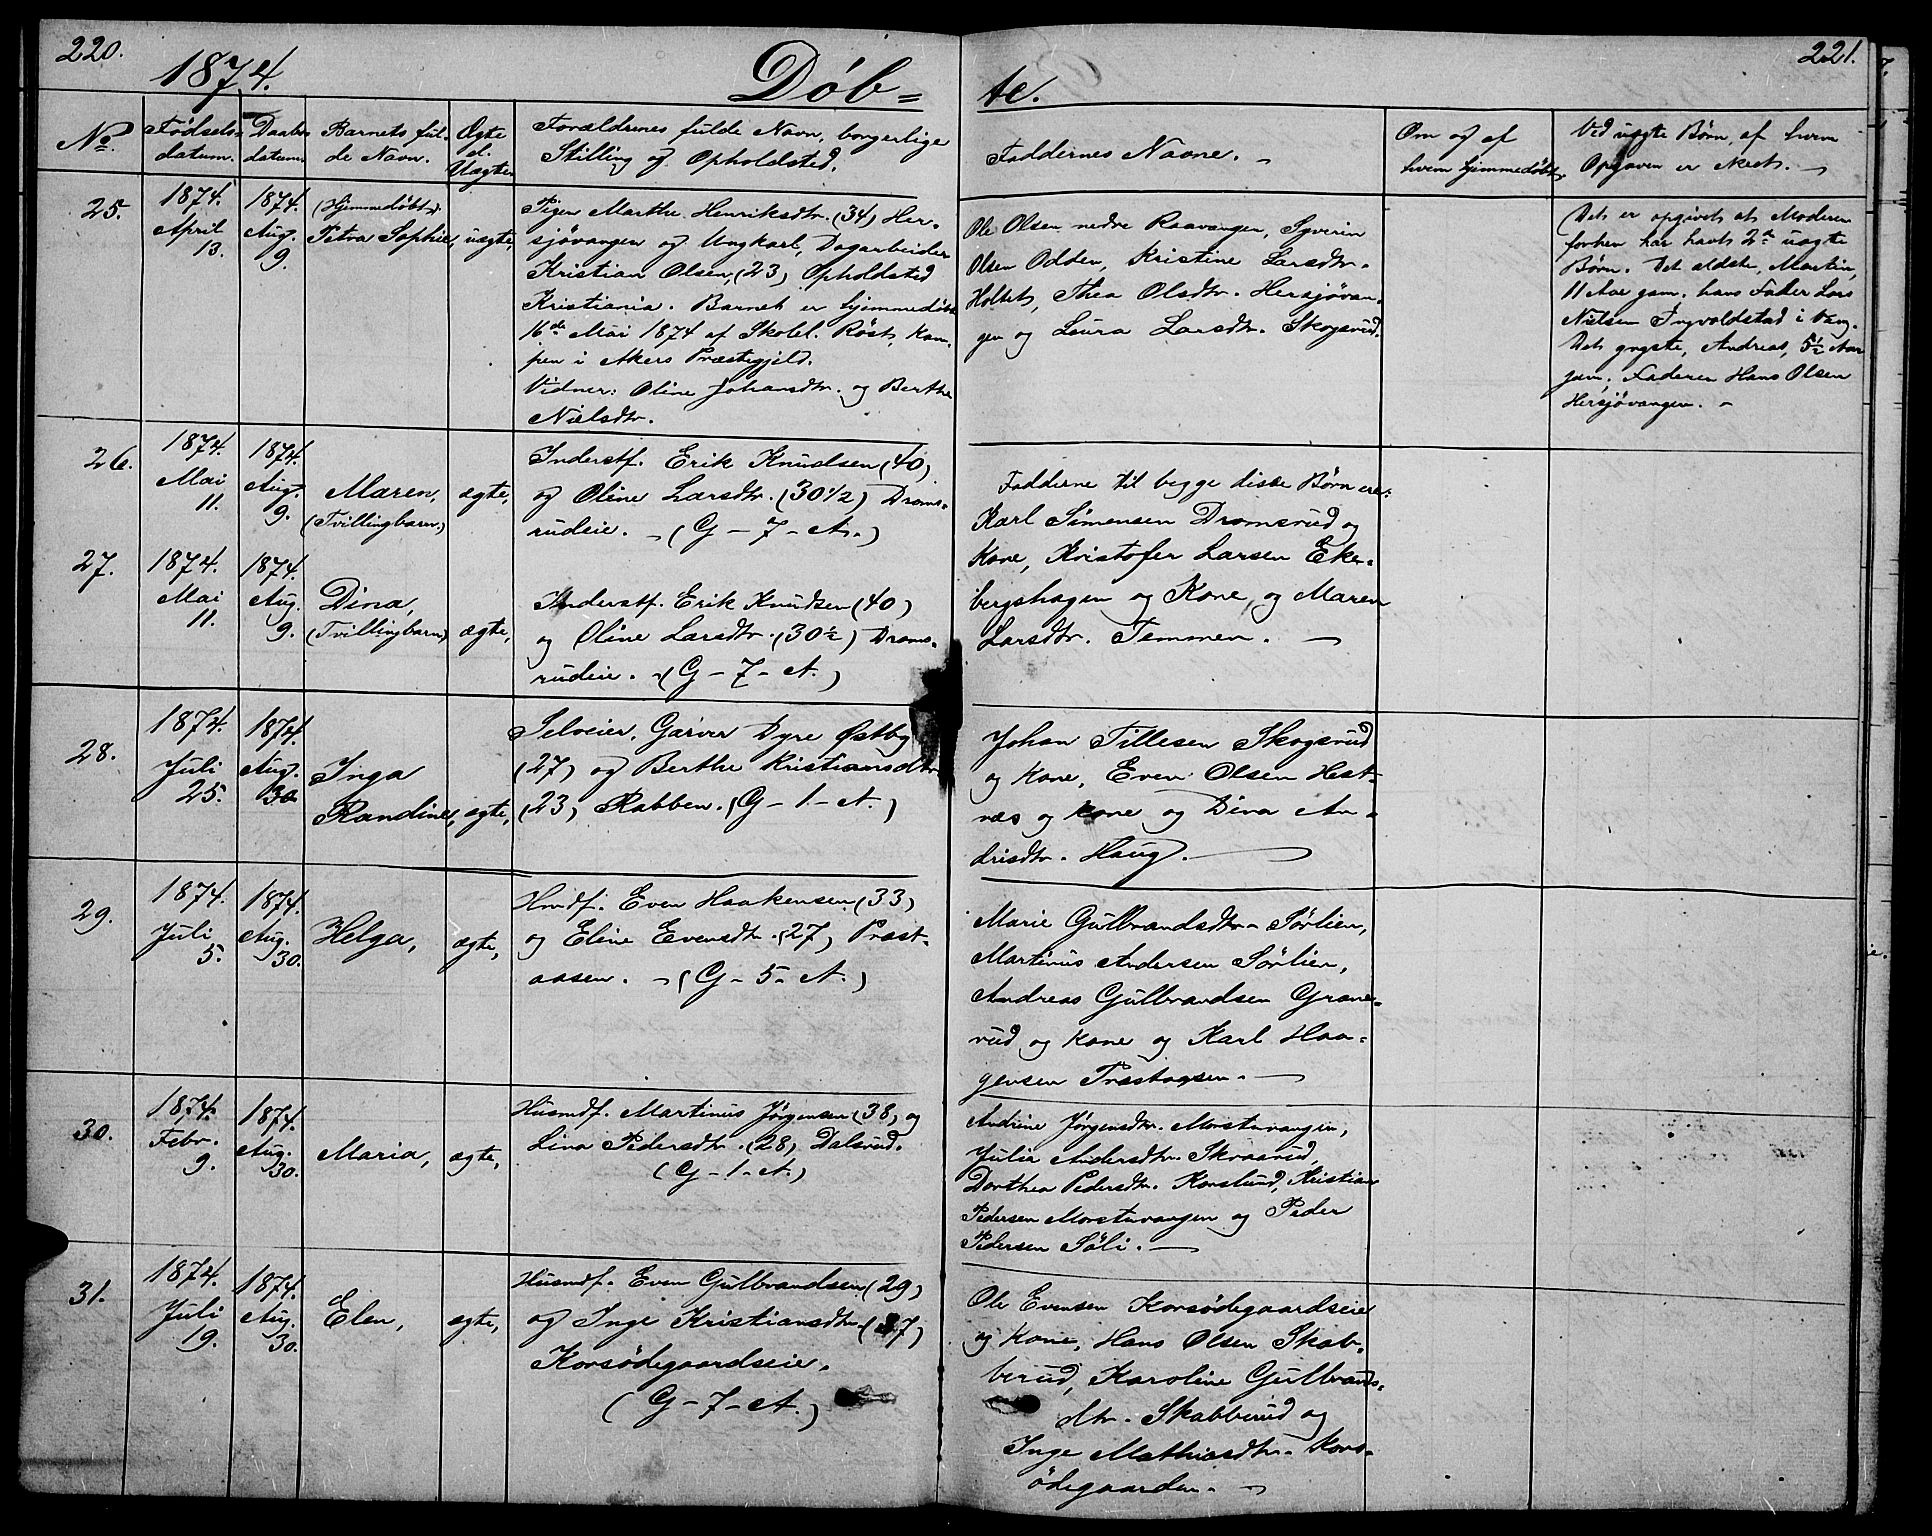 220.
1874.
Döb=
te.
221.
No.
Fødsels-
datum.
Daabs
datum.
Barnets ful-
de Navn.
Ægte
el.
Uægte.
Forældrenes fulde Navn, borgerlige
Stilling og Opholdsted.
Faddernes Navne. -
Om og af
hvem hjemmedøbt.
Ved uægte Børn, af hvem
Opgaven er skeet. -
25.
1874.
April
13.
1874.
Aug.
9.
(Hjemmedøbt).
Petra Sophie,
uægte,
Pigen Marthe Henriksdtr. (34) Her-
sjövangen og Ungkarl, Dagarbeider
Kristian Olsen, (23) Opholdsted
Kristiania. Barnet er hjemmedøbt
16de Mai 1874 af Skolel. Röst, Kam-
pen i Akers Præstegjeld.
Vidner: Oline Johansdtr. og Berthe
Nielsdtr.
Ole Olsen nedre Raavangen, Syverin
Olsen Odden, Kristine Larsdtr.
Holtet, Thea Olsdtr. Hersjövan-
gen og Laura Larsdtr. Skogsrud.
Det er opgivet at Moderen
forhen har havt 2de uægte
Børn. Det ældste, Martin,
11 Aar gam. hans Fader Lars
Nielsen Ingvoldstad i Vang.
Det yngste, Andreas, 5½ Aar
gam. Faderen Hans Olsen
Hersjövangen. -
26.
1874.
Mai
11.
1874.
Aug.
9.
Maren,
(Tvillingbarn.)
ægte,
Inderstf. Erik Knudsen (40)
og Oline Larsdtr. (30 1/2) Droms-
rudeie. - (G - 7 - A.)
Fadderne til begge disse Børn ere:
Karl Simensen Dromsrud og
Kone, Kristofer Larsen Eke-
bergshagen og Kone, og Maren
Larsdtr. Temmen. -
27.
1874.
Mai
11.
1874.
Aug.
9.
Dina,
(Tvillingbarn)
ægte,
Inderstf. Erik Knudsen (40)
og Oline Larsdtr. (30½) Droms-
rudeie. - (G - 7 - A.)
28.
1874.
Juli
25.
1874.
Aug.
30.
Inga
Randine,
ægte,
Selveier, Garver Dyre Østby
(27) og Berthe Kristiansdtr.
(23) Rabben. (G - 1 - A.)
Johan Tillesen Skogsrud
og Kone, Even Olsen Hest-
næs og Kone og Dina An-
drisdtr. Haug. -
29.
1874.
Juli
5.
1874.
Aug.
30.
Helga,
ægte,
Hmdf. Even Haakensen (33)
og Eline Evensdtr. (27) Præst-
aasen. - (G - 5 - A.)
Marie Gulbrandsdtr. Sörlien,
Martinus Andersen Sörlien,
Andreas Gulbrandsen Grane-
rud og Kone og Karl Haa-
gensen Præstaasen. -
30.
1874.
Febr.
9.
1874.
Aug.
30.
Maria,
ægte,
Husmdf. Martinus Jørgensen (38) og
Lina Pedersdtr. (28) Dalsrud.
(G - 1 - A.)
Andrine Jørgensdtr. Morstuvangen,
Julie Andersdtr. Skraarud,
Dorthea Pedersdtr. Korslund, Kristian
Pedersen Morstuvangen og Peder
Pedersen Söli. -
31.
1874.
Juli
19.
1874.
Aug.
30.
Elen,
ægte,
Husmdf. Even Gulbrandsen (29)
og Inge Kristiansdtr. (37)
Korsödegaardseie.
(G - 7 - A.)
Ole Evensen Korsödegaardseie
og Kone, Hans Olsen Skab-
berud, Karoline Gulbrands-
dtr. Skabberud og
Inge Mathiasdtr. Kors-
ödegaarden. -